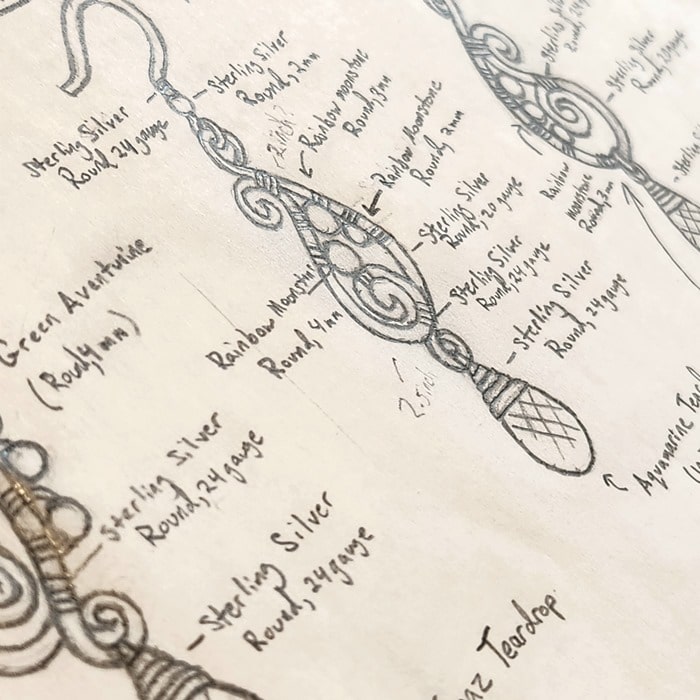 Sterling Silver
Round, 2mm
Sterling Silver
Round, 24 gauge
2 inch?
Rainbow moonstone
Round, 3mm
Rainbow Moonstone
Round, 2mm
Sterling Silver
Round, 20 gauge
Sterling Silver
Round, 24 gauge
Sterling Silver
Round, 24 gauge
Rainbow Moonstone
Round, 4mm
Aquamarine Tear
Sterling Silver
Round, 24
Sterling Silver
Round, 20 gauge
Rainbow
moonstone
Round, 3mm
Green Aventurine
(Round, 4mm)
Sterling Silver
Round, 24 gauge
Sterling Silver
Round, 24 gauge
Teardrop